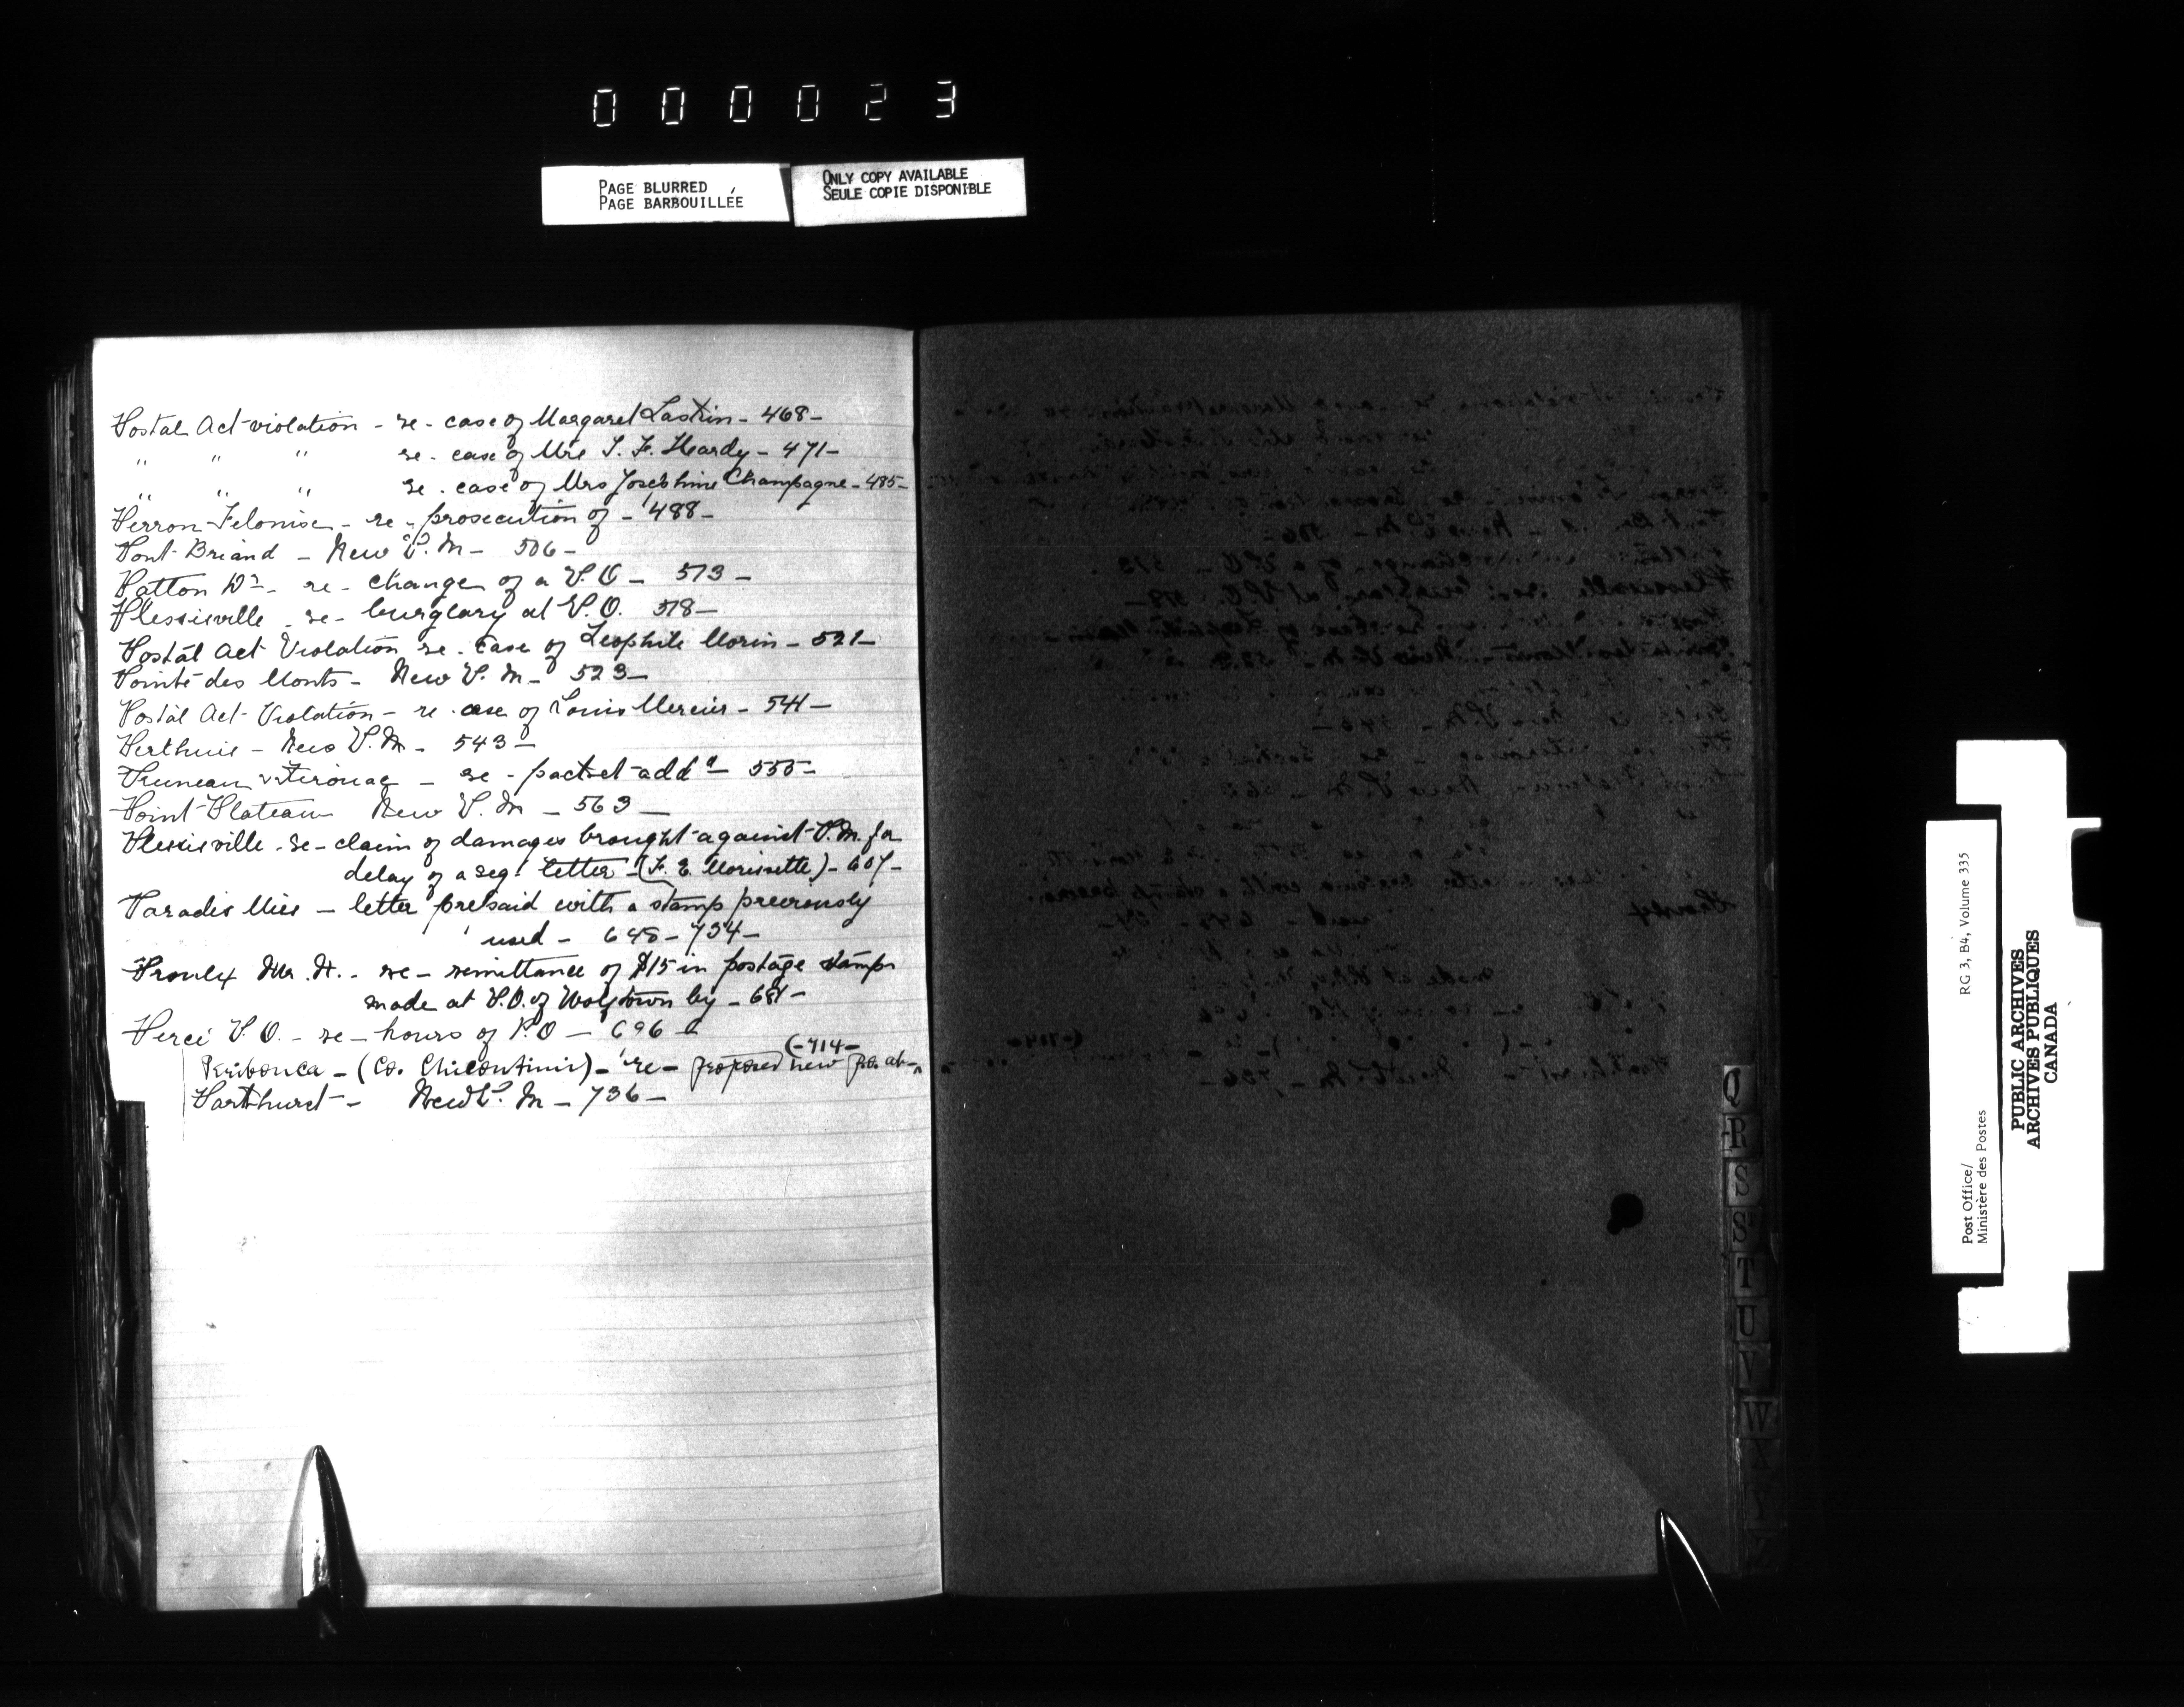 000023
PAGE BLURRED
PAGE BARBOUILLÉE
ONLY COPY AVAILABLE
SEULE COPIE DISPONIBLE
Postal Act violation - re - case of Margaret Laskin - 468 -
" " " re - case of Mrs S. F. Hardy - 471 -
" " " re - case of Mrs Josephine Champagne - 485 -
Perron Felonise - re - prosecution of - 488 -
Pont Briand - New P. M - 506 -
Patton Wm - re - change of a P.O - 513 -
Plessisville - re - burglary at P.O. 518 -
Postal Act Violation re - case of Leophile Morin - 521 -
Pointe des Monts - New P. M - 523 -
Postal Act Violation - re - case of Louis Mercier - 541 -
Perthuis - New P. M - 543 -
Pruneau & Kirouac - re - packet add d - 555 -
Point Plateau New P. M - 563 -
Plessisville - re - claim of damages brought against P.M. for
delay of a reg. letter - (F. E. Morissette) - 607 -
Paradis Miss - letter prepaid with a stamp previously
used - 648 - 734 -
Proulx Mr. H. - re - remittance of $15 in postage stamps
made at P.O. of Wolfstown by - 681 -
Percé P.O. - re - hours of P.O - 696 -
(- 714 -
Peribonca - (Co. Chicoutimi) - re - proposed new p.o. at -
Parthurst - New P. M - 736 -
Q
R
S
S
T
U
V
W
X
Y
Z
RG 3, B4, Volume 335
Post Office/
Ministère des Postes
PUBLIC ARCHIVES
ARCHIVES PUBLIQUES
CANADA